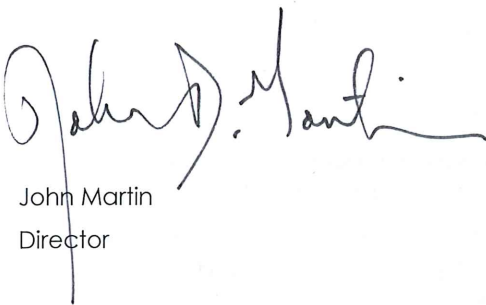 John D. Martin
John Martin
Director